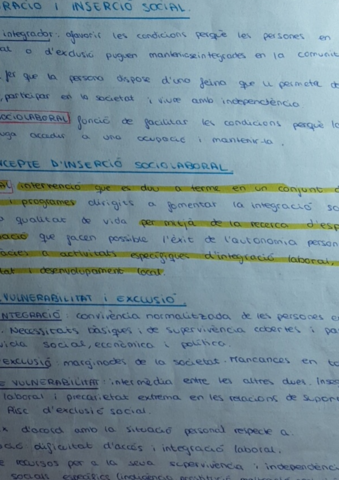 RACIÓ I INSERCIÓ SOCIAL.
integrador: afavorir les condicions perquè les persones en
o d'exclusió puguen mantenir-se integrades en la comunit
fer que la persona dispose d'una feina que li permeta de
participar en la societat i viure amb independència
SOCIOLABORAL funció de facilitar les condicions perquè la
puga accedir a una ocupació i mantenir-la.
NCEPTE D'INSERCIÓ SOCIOLABORAL.
intervenció que es duu a terme en un conjunt d
i programes dirigits a fomentar la integració so
qualitat de vida per mitjà de la recerca d'esp
que facen possible l'èxit de l'autonomia person
a activitats específiques d'integració laboral,
desenvolupament local.
VULNERABILITAT I EXCLUSIÓ
INTEGRACIÓ convivència normalitzada de les persones e
. Necessitats bàsiques i de supervivència cobertes i pa
social, econòmica i política.
EXCLUSIÓ marginades de la societat. Mancances en to
E VULNERABILITAT: intermèdia entre les altres dues. Ines
laboral i precarietat extrema en les relacions de suport
Risc d'exclusió social.
d'acord amb la situació personal respecte a
dificultat d'accés i integració laboral.
E recursos per a la seua supervivència i independènci
socials específics (indigència, prostitució